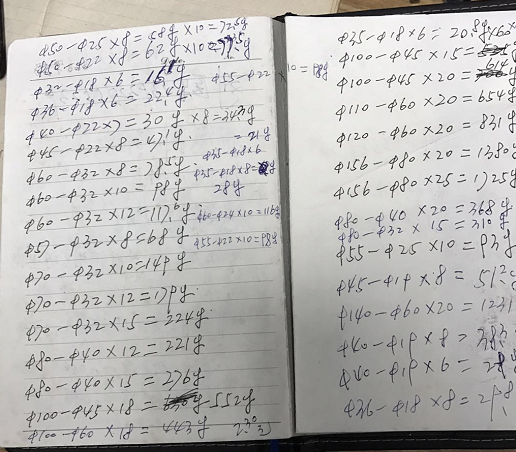 φ50-φ25×8=58g×10=72.5g
φ50-φ22×8=62g×10=77.5g
φ32-φ18×6=
φ36-φ18×6=22.4g φ55-φ22×10=98g
φ40-φ22×7=30g×8=34.3g
φ45-φ22×8=47.1g =21g
φ60-φ32×8=78.5g φ35-φ18×6
φ60-φ32×10=98g φ35-φ18×8= 28g
φ60-φ32×12=117.6g φ60-φ24×10=116g
φ57-φ32×8=68g φ55-φ22×10=98g
φ70-φ32×10=149g
φ70-φ32×12=179g
φ70-φ32×15=224g
φ80-φ40×12=221g
φ80-φ40×15=276g
φ100-φ45×18= 552g
φ100-φ60×18=443g
φ35-φ18×6=20.8g
φ100-φ45×15=
φ100-φ45×20= 614
φ110-φ60×20=654g
φ120-φ60×20=831g
φ156-φ80×20=1380g
φ156-φ80×25=1725g
φ80-φ40×20=368g
φ80-φ32×15=310g
φ55-φ25×10=93g
φ45-φ19×8=51.2g
φ140-φ60×20=1231
φ40-φ19×8=38.3
φ40-φ19×6=28.8
φ36-φ18×8=29.8